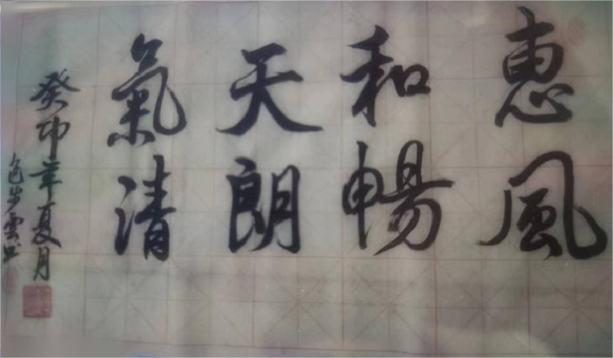 惠風
和暢
天朗
氣清
癸卯年夏月